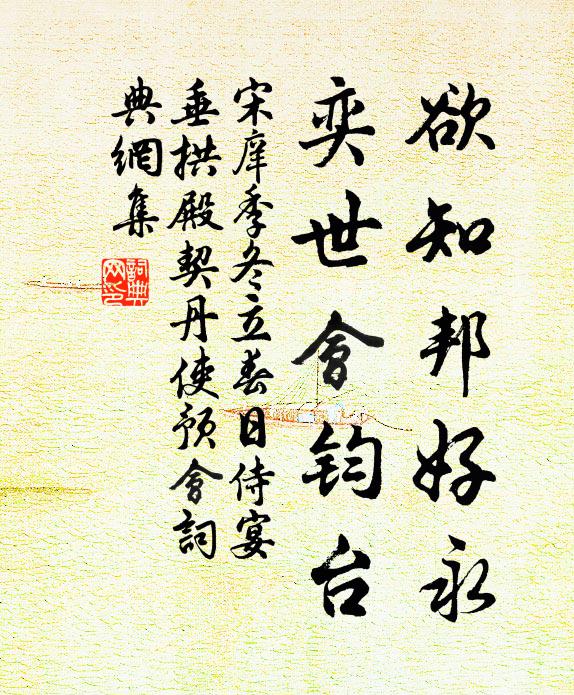 欲知邦好永
奕世會鈞台
宋庠季冬立春日侍宴
垂拱殿契丹使預會詞
典網集
詞典網印